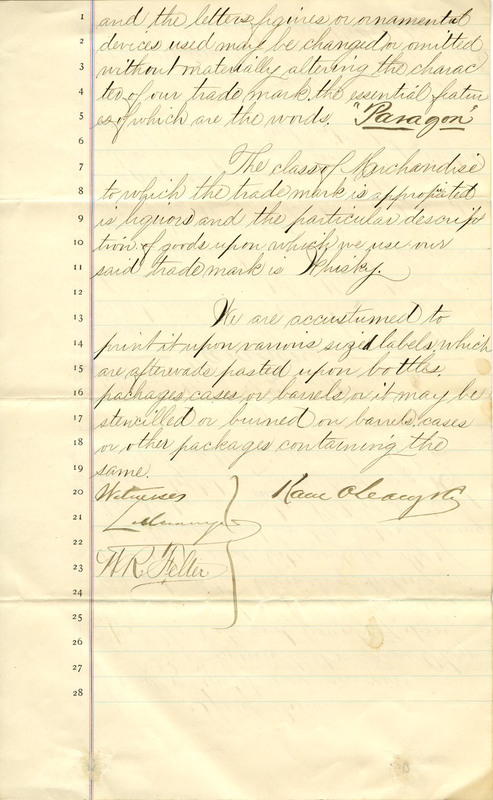 1 and the letters, figures or ornamental
2 devices used may be changed or omitted
3 without materially altering the charac
4 ter of our trade mark. the essential featur
5 es of which are the words. "Paragon"
6
7 The class of Merchandise
8 to which the trade mark is appropriated
9 is liquors and the particular descrip
10 tion of goods upon which we use our
11 said trade mark is Whisky.
12
13 We are accustumed to
14 print it upon various sized labels, which
15 are afterwads pasted upon bottles.
16 packages, cases or barrels or it may be
17 stencilled or burned on barrels. cases
18 or other packages containing the
19 same.
20 Witnesses Kane O'Leary & Co
21
22
23 H R Felter
24
25
26
27
28